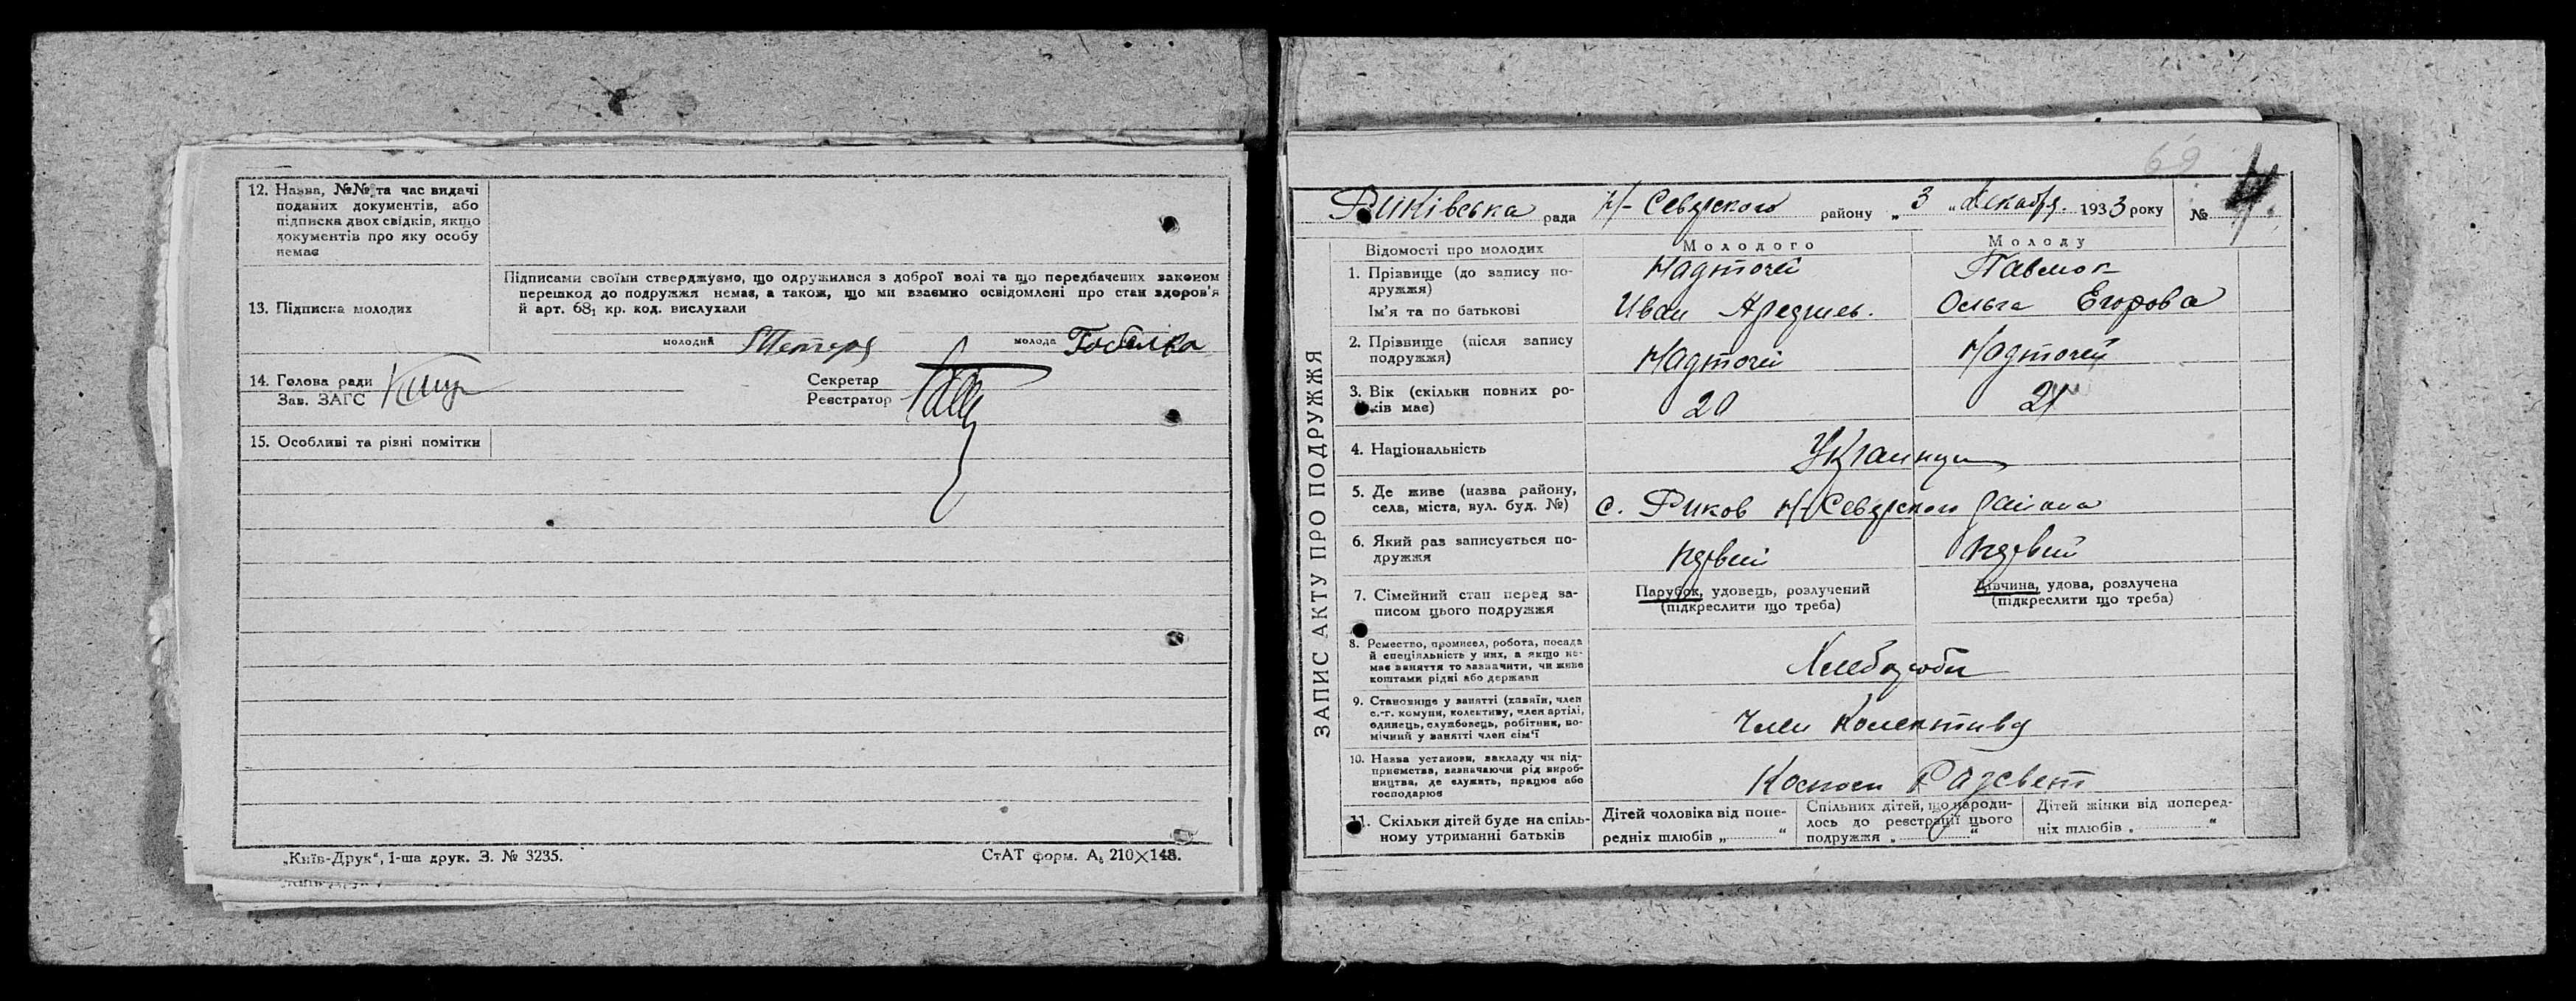 12. Назва, №№ та час видачі
поданих документів, або
підписка двох свідків, якщо
документів про яку особу
немає
Підписами своїми стверджуємо, що одружилися з доброї волі та що передбачених законом
перешкод до подружжя немає, а також, що ми взаємно освідомлені про стан здоров'я
й арт. 68₁ кр. код. вислухали
13. Підписка молодих
молодий Тетеря молода Гобелка
14. Голова ради
Зав. ЗАГС
Секретар
Реєстратор
15. Особливі та різні помітки
„Київ-Друк“, 1-ша друк. З. № 3235.
СтАТ форм. А₅ 210×148.
69
Риківська рада Н-Северского району „3„ декабря 1933 року №
ЗАПИС АКТУ ПРО ПОДРУЖЖЯ
Відомості про молодих Молодого Молоду
1. Прізвище (до запису по-
дружжя) Надточей Павлюк
Ім'я та по батькові Иван Ольга Егорова
2. Прізвище (після запису
подружжя) Надточей Надточей
3. Вік (скільки повних ро-
ків має) 20 21
4. Національність Украинцы
5. Де живе (назва району,
села, міста, вул. буд. №) с. Риков Н-Северского района
6. Який раз записується по-
дружжя первый первый
7. Сімейний стан перед за-
писом цього подружжя
Парубок, удовець, розлучений
(підкреслити що треба)
Дівчина, удова, розлучена
(підкреслити що треба)
8. Ремество, промисел, робота, посада
й спеціяльність у них, а якщо не-
має заняття то зазначити, чи живе
коштами рідні або держави
Хлеборобы
9. Становище у занятті (хазяїн, член
с.-г. комуни, колективу, член артілі,
одинець, службовець, робітник, по-
мічний у занятті член сім'ї
Член Колективу
10. Назва установи, закладу чи під-
приємства, зазначаючи рід вироб-
ництва, де служить, працює або
господарює
Разсвет
11. Скільки дітей буде на спіль-
ному утриманні батьків
Дітей чоловіка від попе-
редніх шлюбів „ “
Спільних дітей, що народи-
лось до реєстрації цього
подружжя „ “
Дітей жінки від поперед-
ніх шлюбів „ “